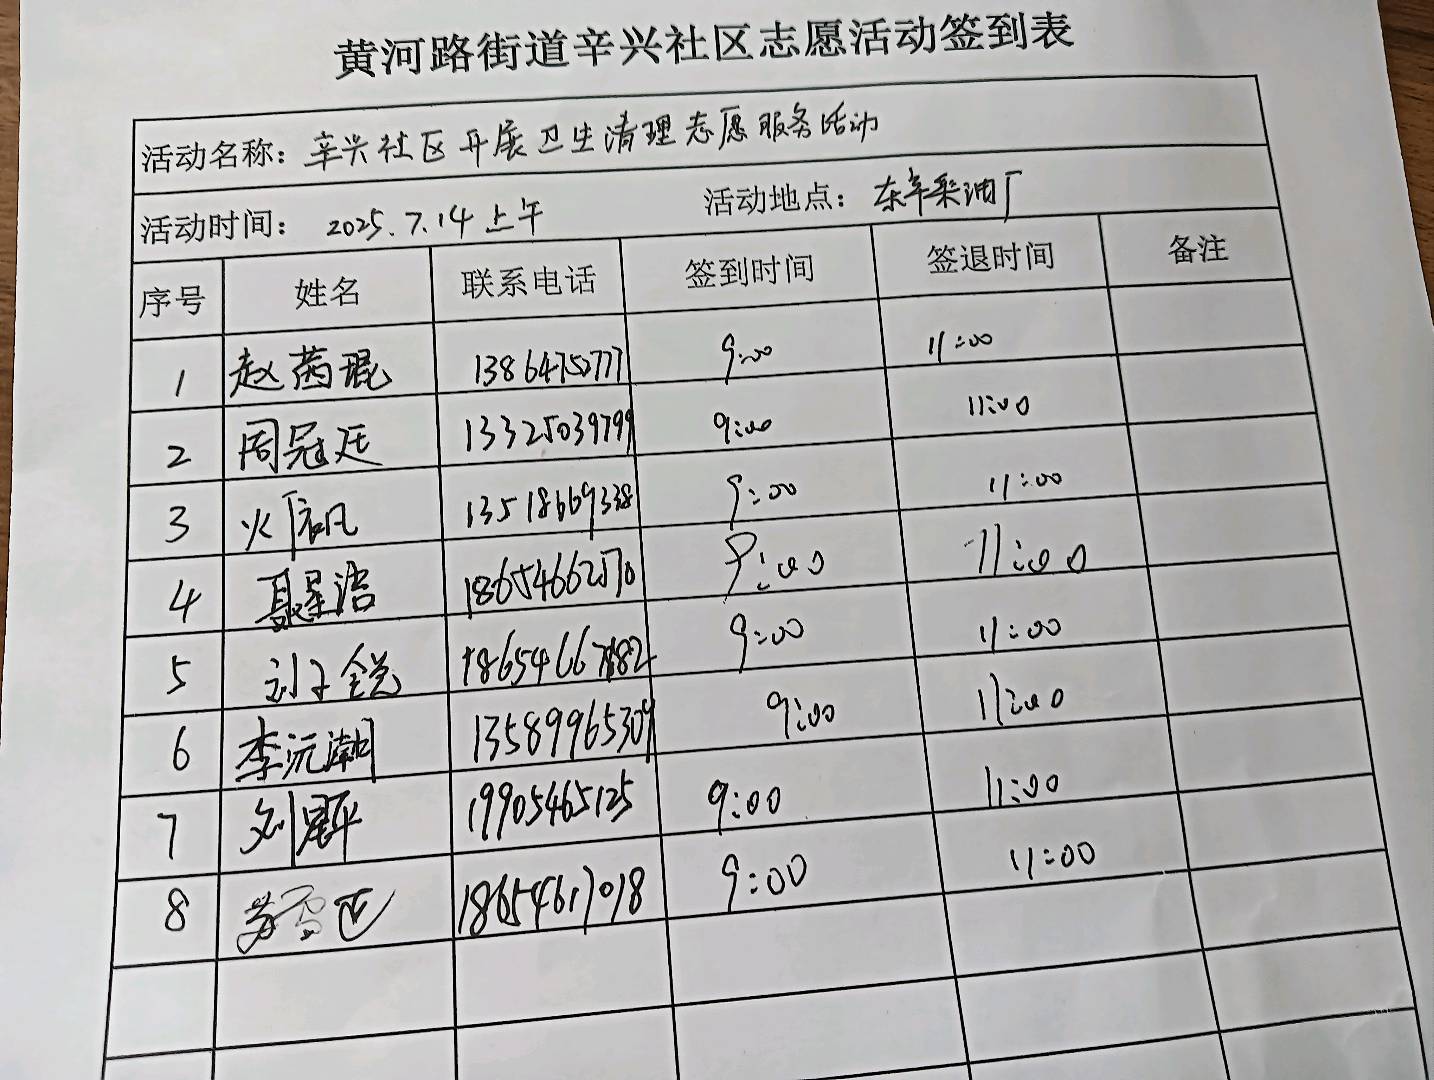 黄河路街道辛兴社区志愿活动签到表
活动名称：辛兴社区开展卫生清理志愿服务活动
活动时间： 2025.7.14上午 活动地点：东辛采油厂
序号 姓名 联系电话 签到时间 签退时间 备注
1 赵茜琨 13864752777 9:00 11:00
2 周冠廷 13325039799 9:00 11:00
3 13518669338 9:00 11:00
4 聂星浩 18654662570 9:00 11:00
5 刘子锐 9:00 11:00
6 李沅潮 13589965309 9:00 11:00
7 刘 19905465125 9:00 11:00
8 18654617018 9:00 11:00